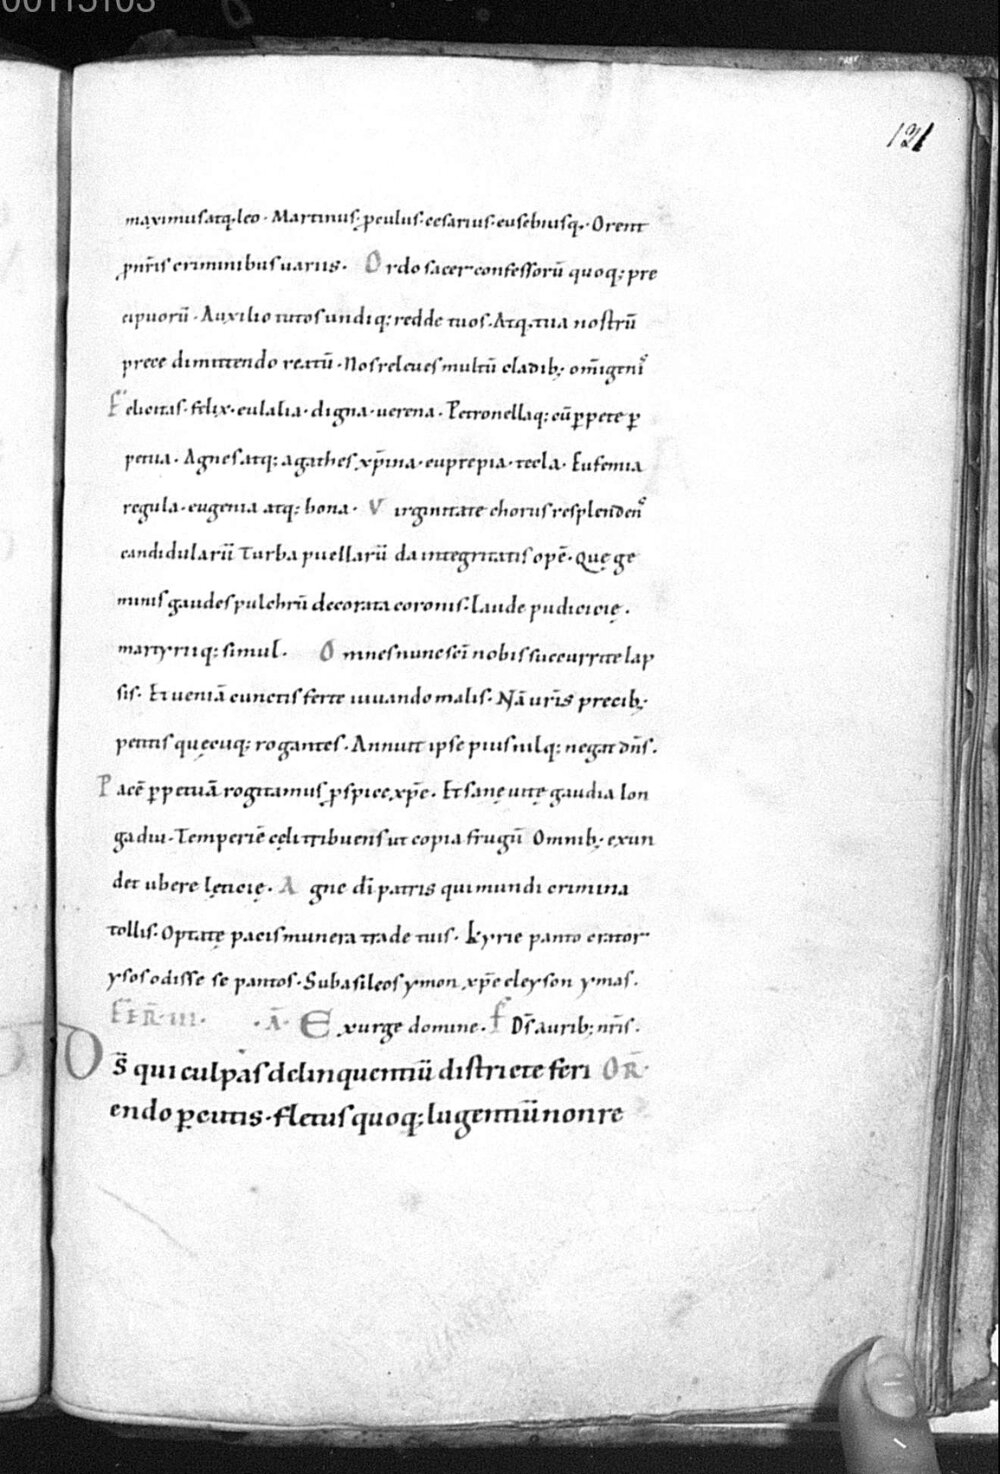 00115103
121
maximus atq; leo · Martinus · p̱culus · cesarius · eusebiusq; · Orent
p̱ nr̄is criminibus uariis · Ordo sacer confessorū quoq; pre
cipuorū · Auxilio tutos undiq; redde tuos · Atq; tua nostrū
prece dimittendo reatū · Nos releues multū cladib; om̄igeni᷒
Felicitas · felix · eulalia · digna · uerena · Petronellaq; cū ꝑpete ꝑ
petua · Agnes atq; agathes xp̄ina · euprepia · tecla · Eufemia
regula · eugenia atq; bona · Virginitate chorus resplenden᷒
candidularū Turba puellarū da integritatis opē · Quę ge
minis gaudes pulchrū decorata coronis · Laude pudicicię ·
martyriiq; simul · Omnes nunc sc̄i nobis succurrite lap
sis · Et ueniā cunctis ferte iuuando malis · Nā ur̄is precib;
petitis quęcuq; rogantes · Annuit ipse pius nilq; negat dn̄s ·
Pacē ꝑpetuā rogitamus ꝓspice xp̄e · Et sanę uitę gaudia lon
ga diu · Temperiē cęli tribuens ut copia frugū Omnib; exun
det ubere lęticię · Agne dī patris qui mundi crimina
tollis · Optatę pacis munera trade tuis · Kyrie panto crator
ysos odisse se pantos · Subasileos ymon xp̄e eleyson ymas ·
FER̄ · III · · Ā · Exurge domine · f Ds̄ aurib; nr̄is ·
Ds̄ qui culpas delinquentiū districte feri OR̄
endo ꝑcutis · fletus quoq; lugentiū non re